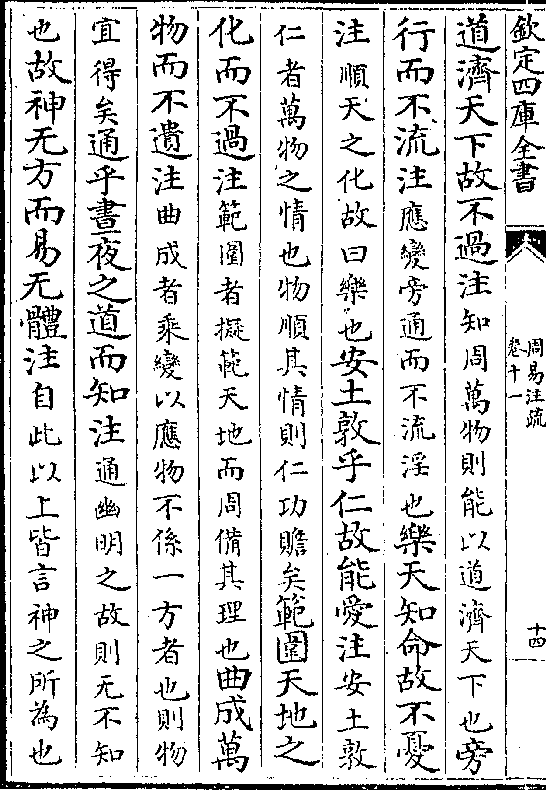 欽定四庫全書
周易注疏
卷十一
十四
道濟天下故不過注知周萬物則能以道濟天下也旁
行而不流注應變旁通而不流淫也樂天知命故不憂
注順天之化故曰樂也安土敦乎仁故能愛注安土敦
仁者萬物之情也物順其情則仁功贍矣範圍天地之
化而不過注範圍者擬範天地而周備其理也曲成萬
物而不遺注曲成者乘變以應物不係一方者也則物
宜得矣通乎晝夜之道而知注通幽明之故則无不知
也故神无方而易无體注自此以上皆言神之所為也